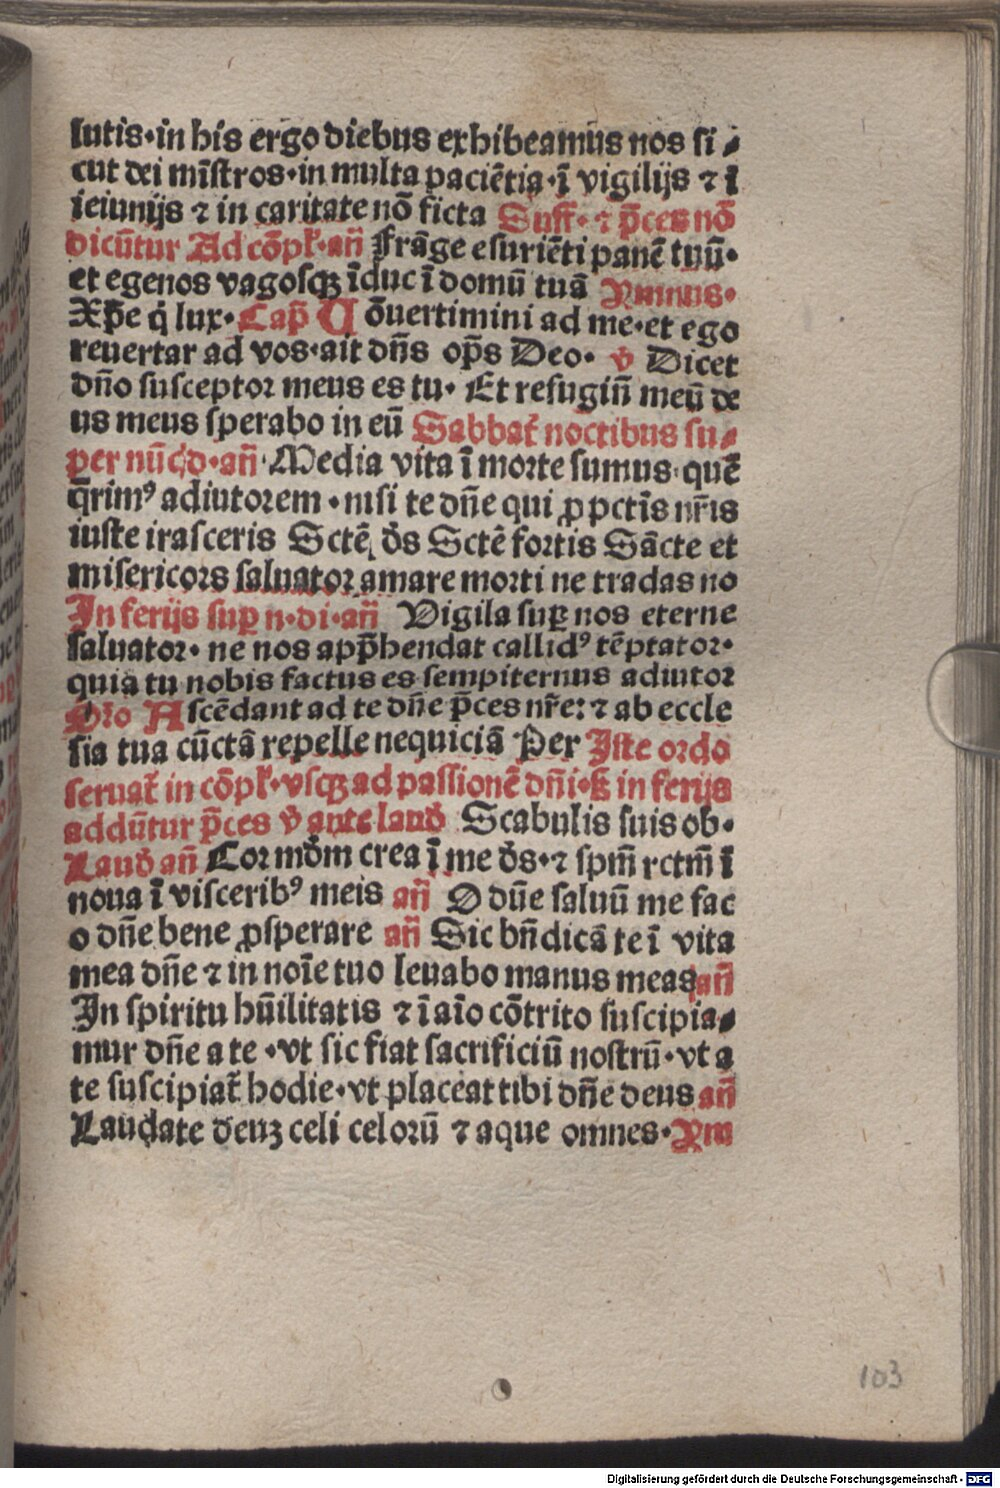 lutis·in his ergo diebus exhibeamus nos si⸗
cut dei mīstros·in multa paciētia·ī vigilijs ⁊ ī
ieiunijs ⁊ in caritate nō ficta Suff· ⁊ p̄ces nō
dicūtur Ad cōpƚ·añ Frāge esuriēti panē tuū·
et egenos vagosqꝫ īduc ī domū tuā Ymnus·
Xp̄e q̇ lux· Cap̄ Cōuertimini ad me·et ego
reuertar ad vos·ait dn̄s op̄s Deo· v̄ Dicet
dn̄o susceptor meus es tu· Et refugiū meū de
us meus sperabo in eū Sabbat̄ noctibus su⸗
per nūc d̄·añ·Media vita ī morte sumus·quē
q̄rimꝰ adiutorem·nisi te dn̄e qui ꝓ pctīs nr̄is
iuste irasceris Sctē ds̄ Sctē fortis Sācte et
misericors saluator amare morti ne tradas no
In ferijs suꝑ n·di·añ Vigila suꝑ nos eterne
saluator·ne nos app̄hendat callidꝰ tēptator·
quia tu nobis factus es sempiternus adiutor
Or̄o Ascēdant ad te dn̄e p̄ces nr̄e: ⁊ ab eccle
sia tua cūctā repelle nequiciā Per Iste ordo
seruat̄ in cōpƚ·vsqꝫ ad passionē dn̄i·sꝫ in ferijs
addūtur p̄ces v̄ ante laud̄ Scabulis suis ob·
Laud̄ añ Cor mūdm crea ī me ds̄·⁊ spm̄ rctm̄ ī
noua ī visceribꝰ meis añ O dn̄e saluū me fac
o dn̄e bene ꝓsperare añ Sic bn̄dicā te ī vita
mea dn̄e ⁊ in noīe tuo leuabo manus meas añ
In spiritu hūilitatis ⁊ ī aīo cōtrito suscipia⸗
mur dn̄e a te·vt sic fiat sacrificiū nostrū·vt a
te suscipiat̄ hodie·vt placeat tibi dn̄e deus añ
Laudate deuꝫ celi celorū ⁊ aque omnes·
103
Digitalisierung gefördert durch die Deutsche Forschungsgemeinschaft - DFG